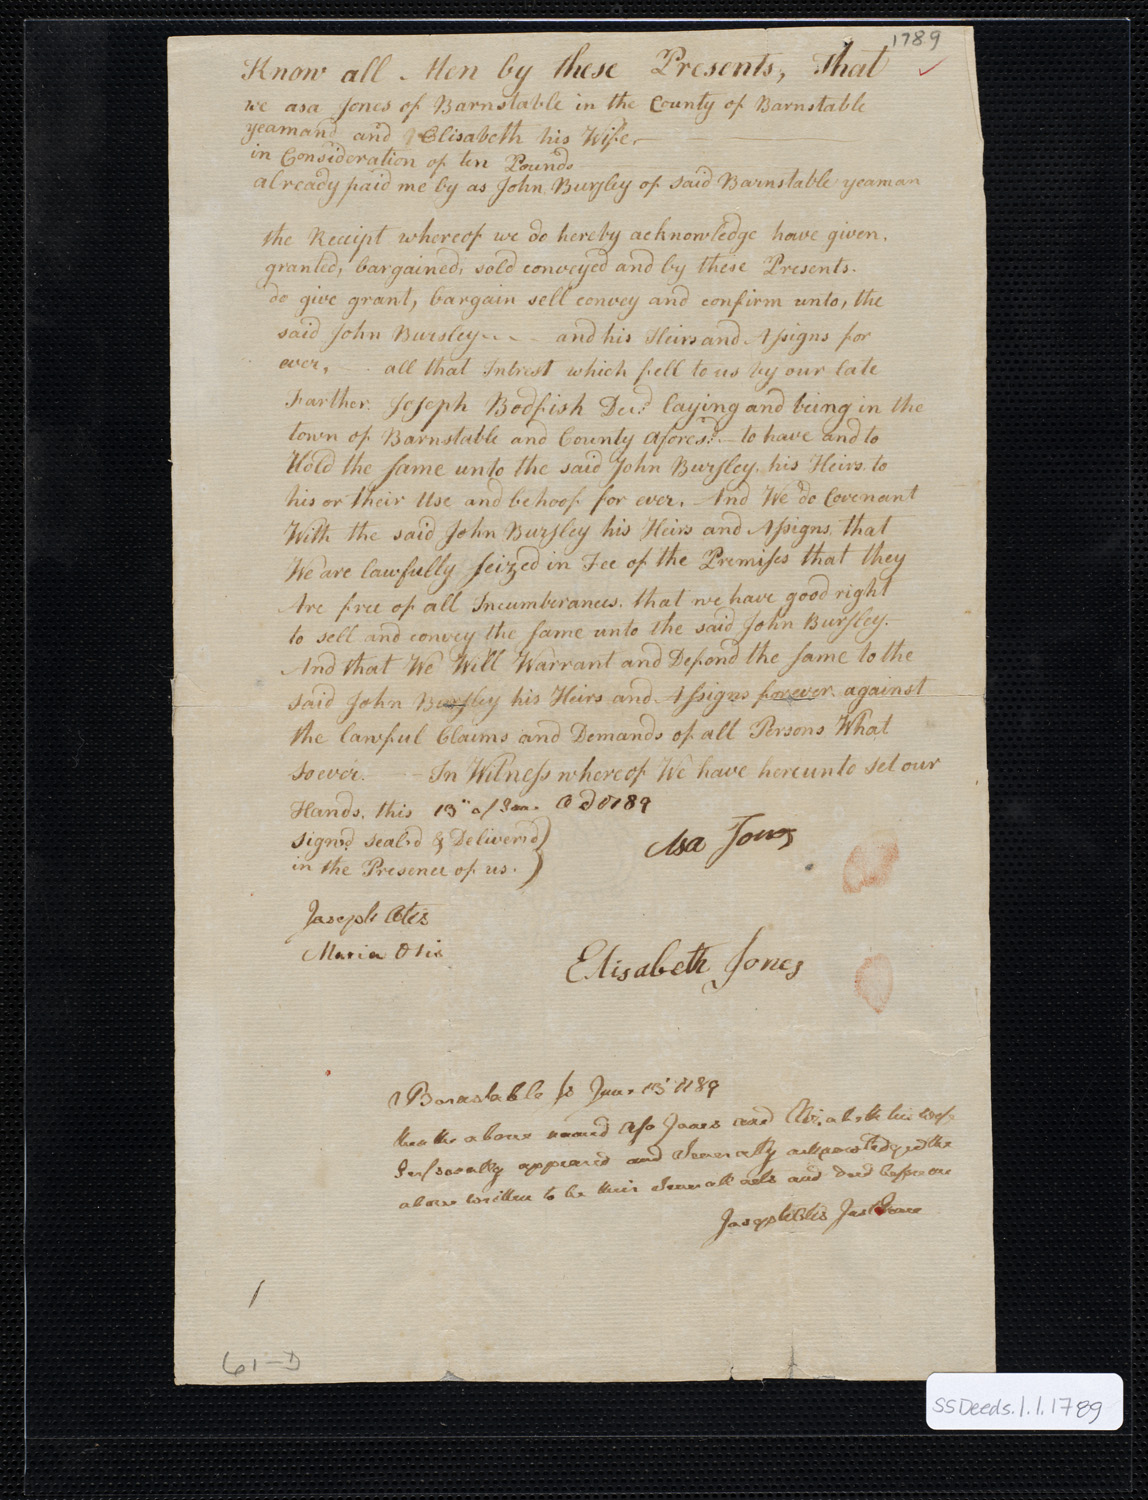 1789
Know all Men by these Presents, That
we asa Jones of Barnstable in the County of Barnstable
yeamand and Elisabeth his Wife.
in Consideration of ten Pounds
already paid me by as John Bursley of said Barnstable yeaman
the Receipt whereof we do hereby acknowledge have given,
granted, bargained, sold conveyed and by these Presents.
do give grant, bargain sell convey and confirm unto, the
said John Bursley - - - and his Heirs and Assigns for
ever, all that Intrest which fell to us by our late
Farther. Joseph Bodfish Decd. laying and being in the
town of Barnstable and County aforesd. - to have and to
Hold the same unto the said John Bursley, his Heirs, to
his or their Use and behoof for ever, And We do Covenant
With the said John Bursley his Heirs and Assigns, that
We are lawfully seized in Fee of the Premises that they
Are free of all Incumberances. that we have good right
to sell and convey the same unto the said John Bursley.
And that We Will Warrant and Defond the same to the
said John Bursley his Heirs and Assigns forever against
the lawful Claims and Demands of all Persons What
soever. - In Witness whereof We have hereunto set our
Hands, this 13th of Jan. AD 1789
Signd seal'd & Deliverd
in the Presence of us.
Asa Jones
Joseph Otis
Maria Otis
Elisabeth Jones
Barnstable ss Jany 13 1789
then the above named Asa Jones and Elisabeth his wife
Personally appeared and Severally acknowledged the
above written to be their Several acts and deed before me
Joseph Otis Just Peace
61-D
SSDeeds.1.1.1789